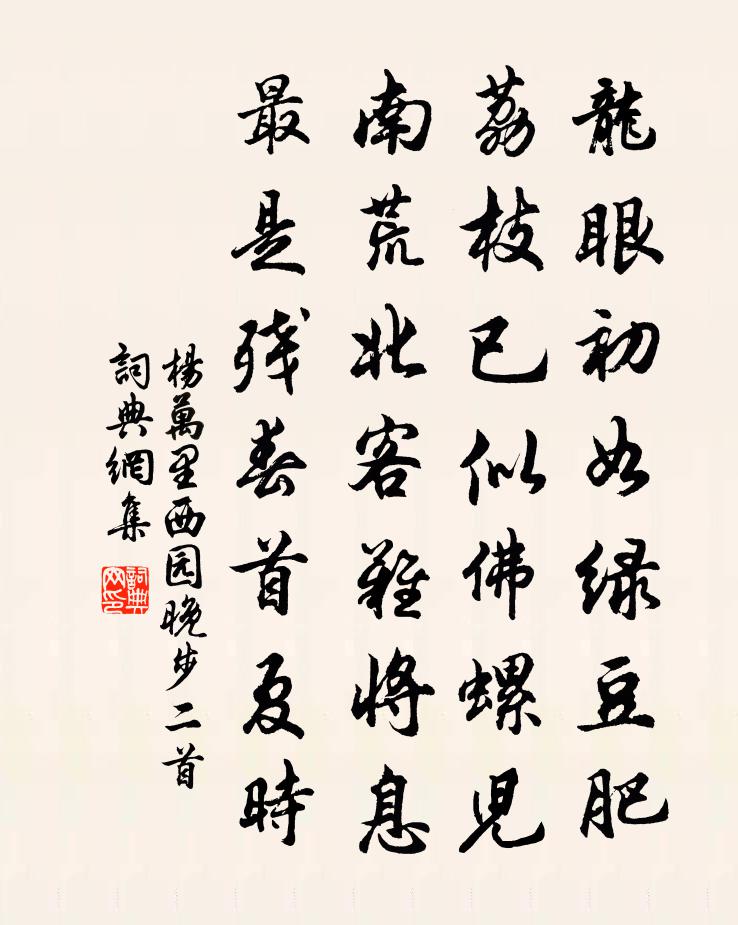 龍眼初如绿豆肥
荔枝已似佛螺兒
南荒北客難将息
最是残春首夏時
楊萬里西园晚步二首
詞典網集
詞典网印